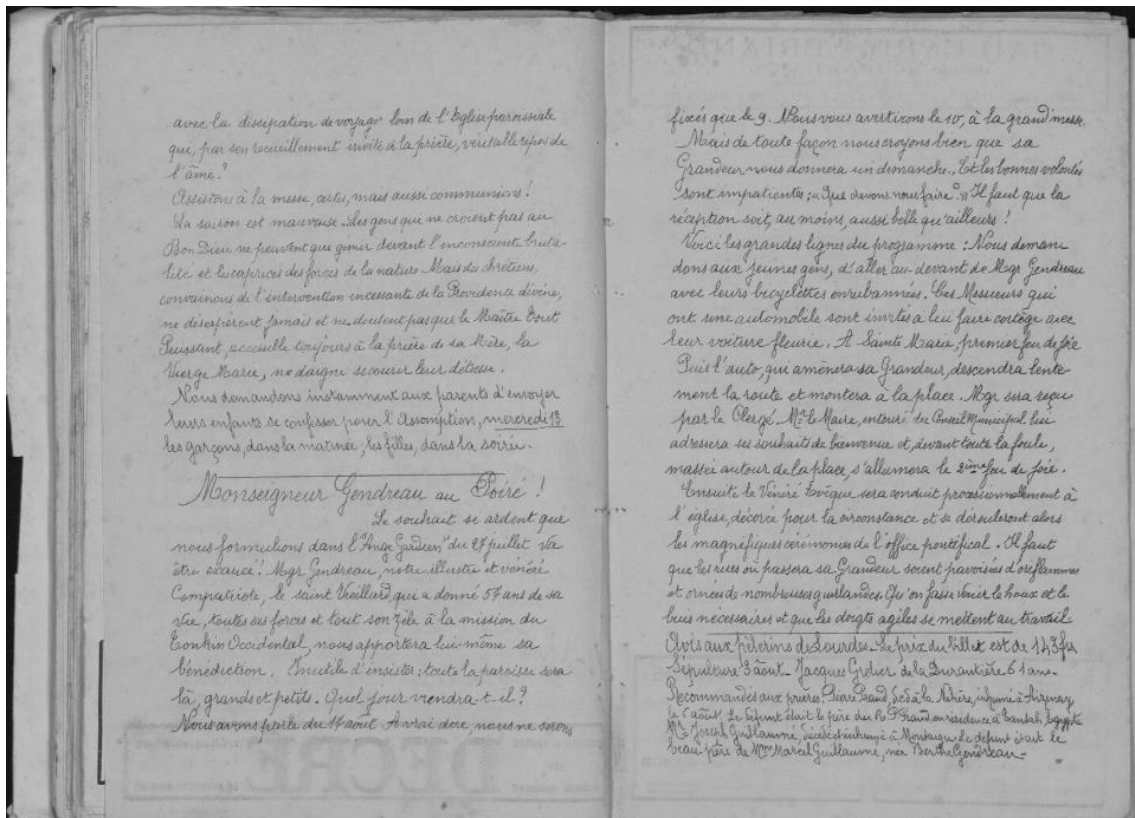 avec la dissipation de voyage loin de l'Eglise paroissiale
qui, par son recueillement invite à la prière, véritable repos de
l'âme?
Assistons à la messe, certes, mais aussi communions!
La saison est mauvaise. Les gens qui ne croient pas au
Bon Dieu ne peuvent que gémir devant l'inconsciente bruta-
lité et les caprices des forces de la nature. Mais des chrétiens,
convaincus de l'intervention incessante de la Providence divine,
ne désespèrent jamais et ne doutent pas que le Maître Tout
Puissant, accessible toujours à la prière de sa Mère, la
Vierge Marie, ne daigne secourir leur détresse.
Nous demandons instamment aux parents d'envoyer
leurs enfants se confesser pour l'Assomption, mercredi 13
les garçons, dans la matinée; les filles, dans la soirée.
Monseigneur Gendreau au Poiré!
Le souhait si ardent que
nous formulions dans l'"Ange Gardien" du 27 juillet va
être exaucé! Mgr Gendreau, notre illustre et vénéré
Compatriote, le saint Vieillard, qui a donné 57 ans de sa
vie, toutes ses forces et tout son zèle à la mission du
Tonkin Occidental, nous apportera lui-même sa
bénédiction. Inutile d'insister: toute la paroisse sera
là, grands et petits. Quel jour viendra-t-il?
Nous avons parlé du 17 août. A vrai dire, nous ne serons
fixés que le 9. Nous vous avertirons le 10, à la grand'messe.
Mais de toute façon nous croyons bien que sa
Grandeur nous donnera un dimanche. Et les bonnes volontés
sont impatientes: "Que devons nous faire?" Il faut que la
réception soit, au moins, aussi belle qu'ailleurs!
Voici les grandes lignes du programme: Nous deman
dons aux jeunes gens, d'aller au-devant de Mgr Gendreau
avec leurs bicyclettes enrubannées. Les Messieurs qui
ont une automobile sont invités à lui faire cortège avec
leur voiture fleurie. A Sainte Marie, premier feu de joie
Puis l'auto, qui amènera sa Grandeur, descendra lente-
ment la route et montera à la place. Mgr sera reçu
par le Clergé. Mr le Maire, entouré du Conseil Municipal lui
adressera ses souhaits de bienvenue et, devant toute la foule,
massée autour de la place, s'allumera le 2ème feu de joie.
Ensuite le Vénéré Evêque sera conduit processionnellement à
l'église, décorée pour la circonstance et se dérouleront alors
les magnifiques cérémonies de l'office pontifical. Il faut
que les rues où passera sa Grandeur soient pavoisées d'oriflammes
et ornées de nombreuses guirlandes. Qu'on fasse venir le houx et le
buis nécessaires et que les doigts agiles se mettent au travail
Avis aux pèlerins de Lourdes. Le prix du billet est de 143 frs
Sépulture 3 août. Jacques de la Durantière 61 ans.
Recommandés aux prières: Pierre décédé à la inhumé à Aizenay
le 5 août. Le défunt était le père du en résidence à Tantah, Egypte
Mr Joseph Guillaume, décédé et inhumé à Montaigu. Le défunt était le
beau père de Mme Marcel Guillaume, née Berthe Gendreau.